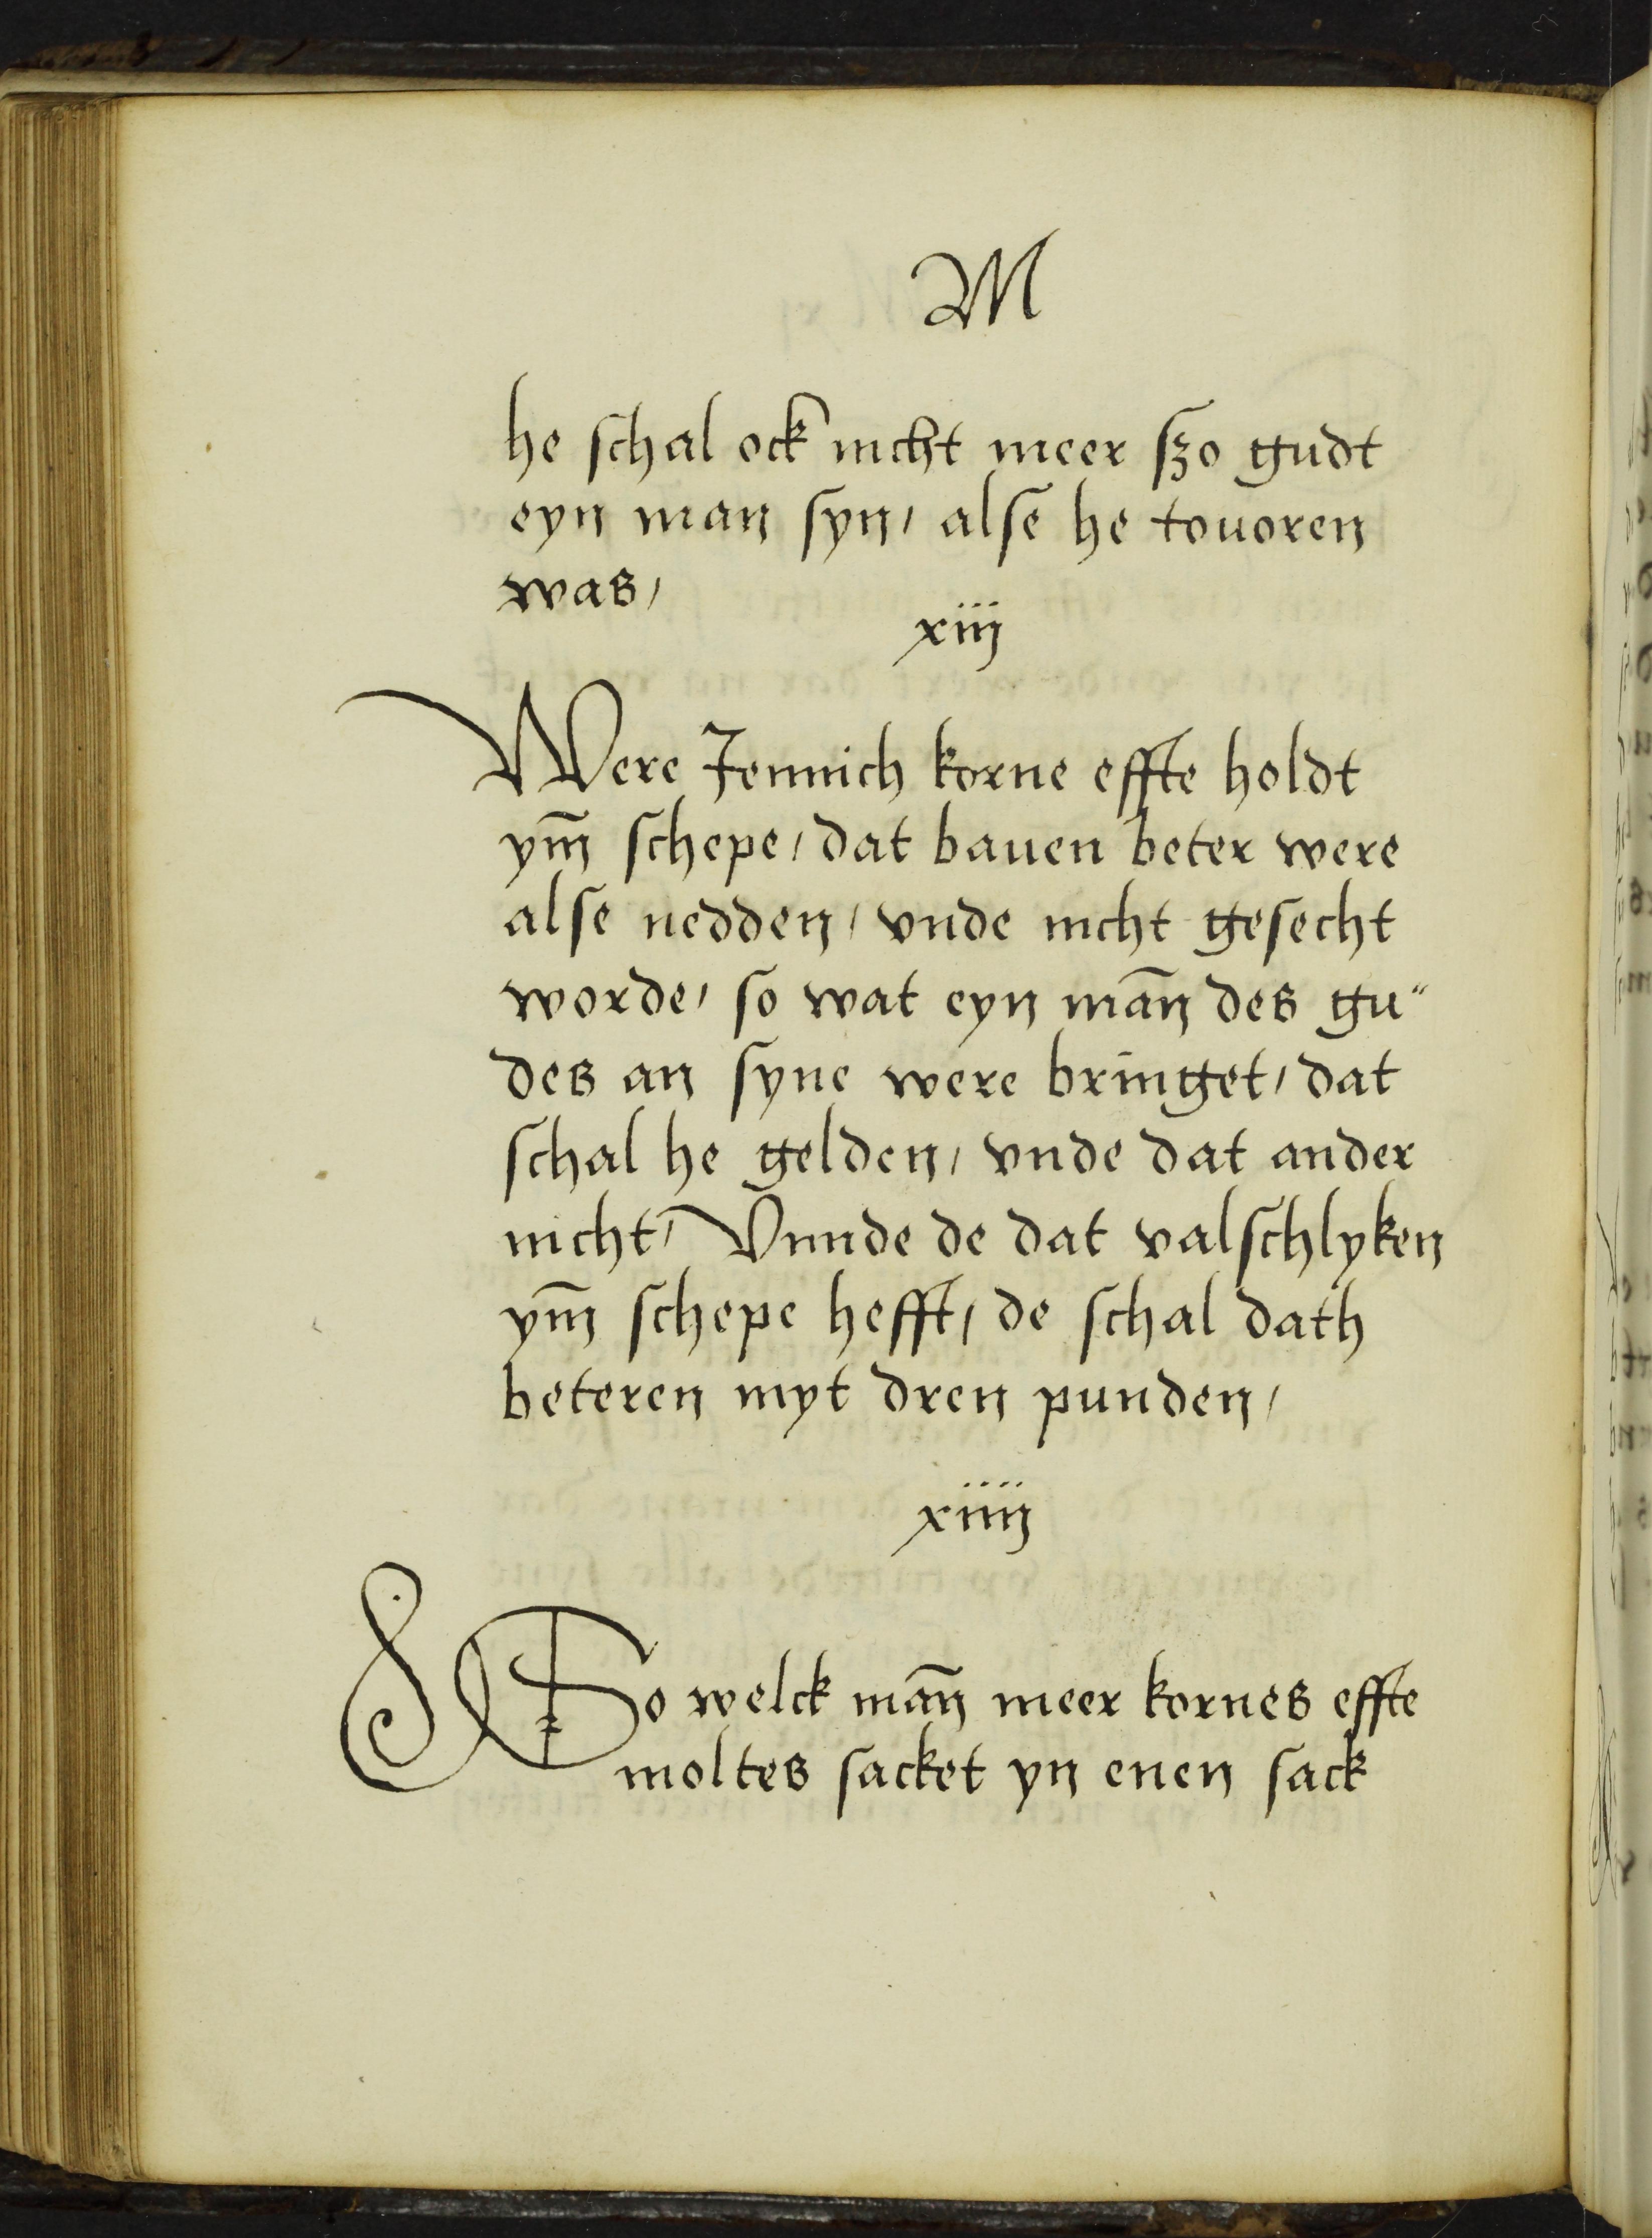 M
he schal ock nicht meer szo gudt
eyn man syn/ alse he touoren
was/
xiij
Were Jennich korne effte holdt
ym̄ schepe/ dat bauen beter were
alse nedden/ vnde nicht gesecht
worde/ so wat eyn mān des gu"
des an syne were bringet/ dat
schal he gelden/ vnde dat ander
nicht/ Vnnde de dat valschlyken
ym̄ schepe hefft/ de schal dath
beteren myt dren punden/
xiiij
So welck mān meer kornes effte
moltes sacket yn enen sack